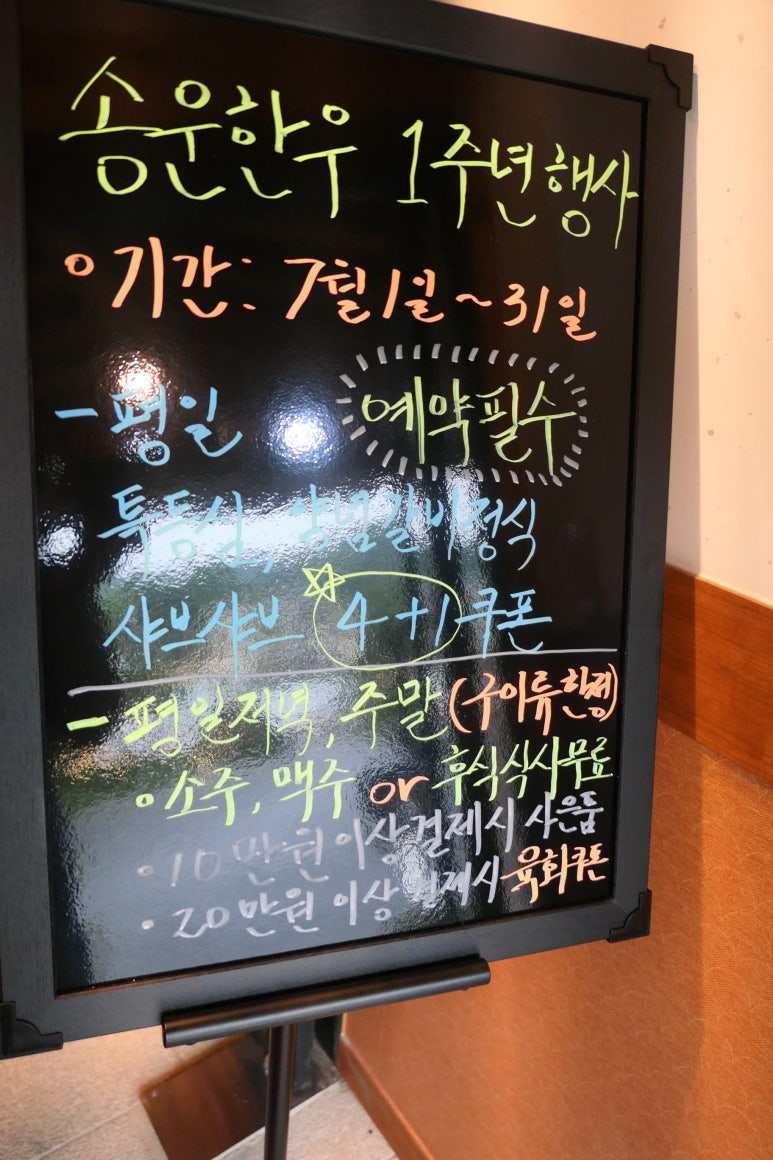 송운한우 1주년 행사
○기간: 7월1일~31일
-평일 예약필수
특등심, 양념갈비정식
샤브샤브 4+1 쿠폰
-평일저녁, 주말 (구이류 한정)
○소주, 맥주 or 후식식사무료
·10만원이상 결제시 사은품
·20만원 이상 결제시 육회쿠폰